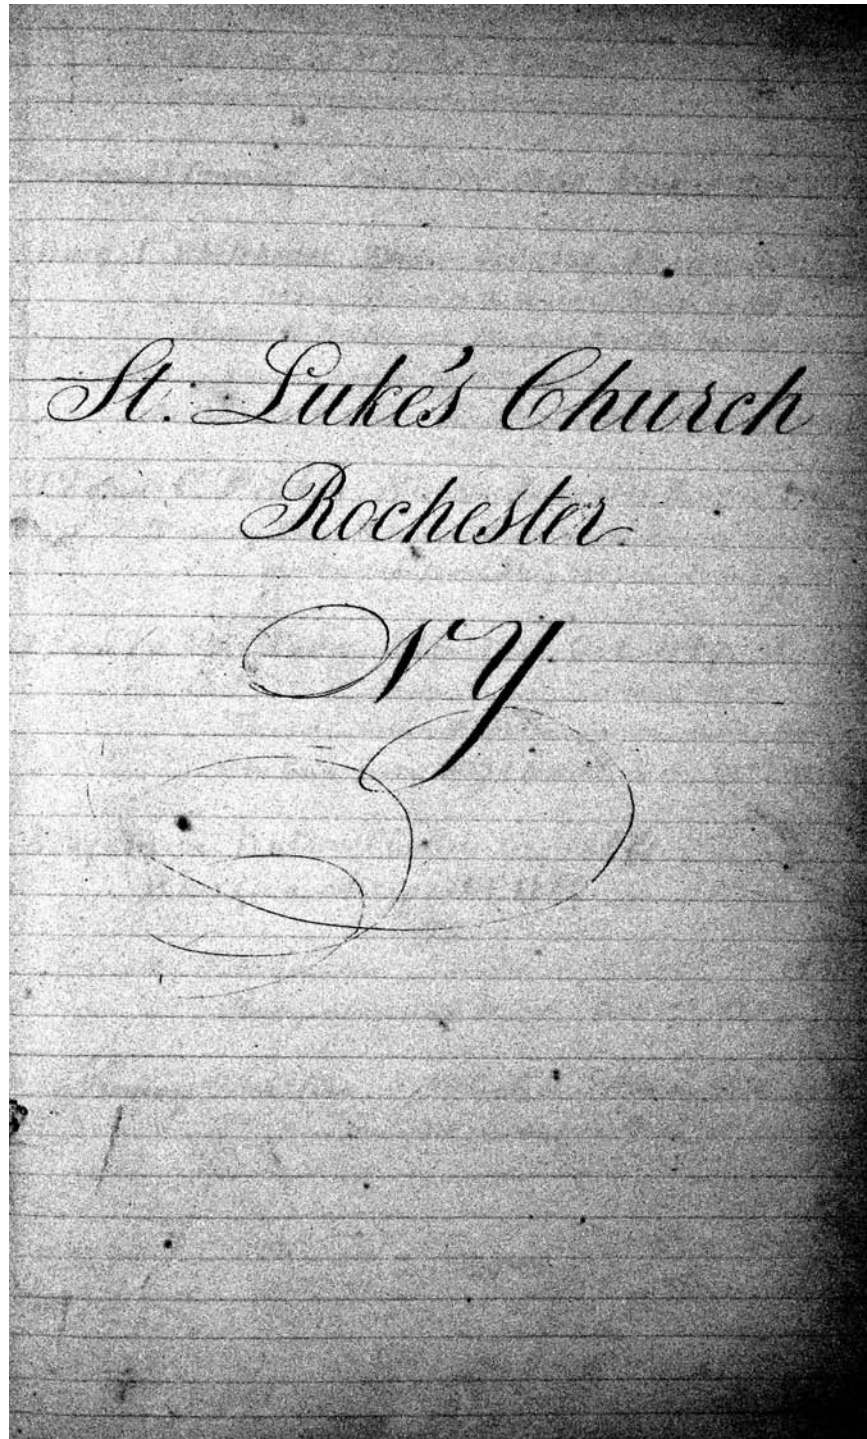 St. Luke's Church
Rochester
NY